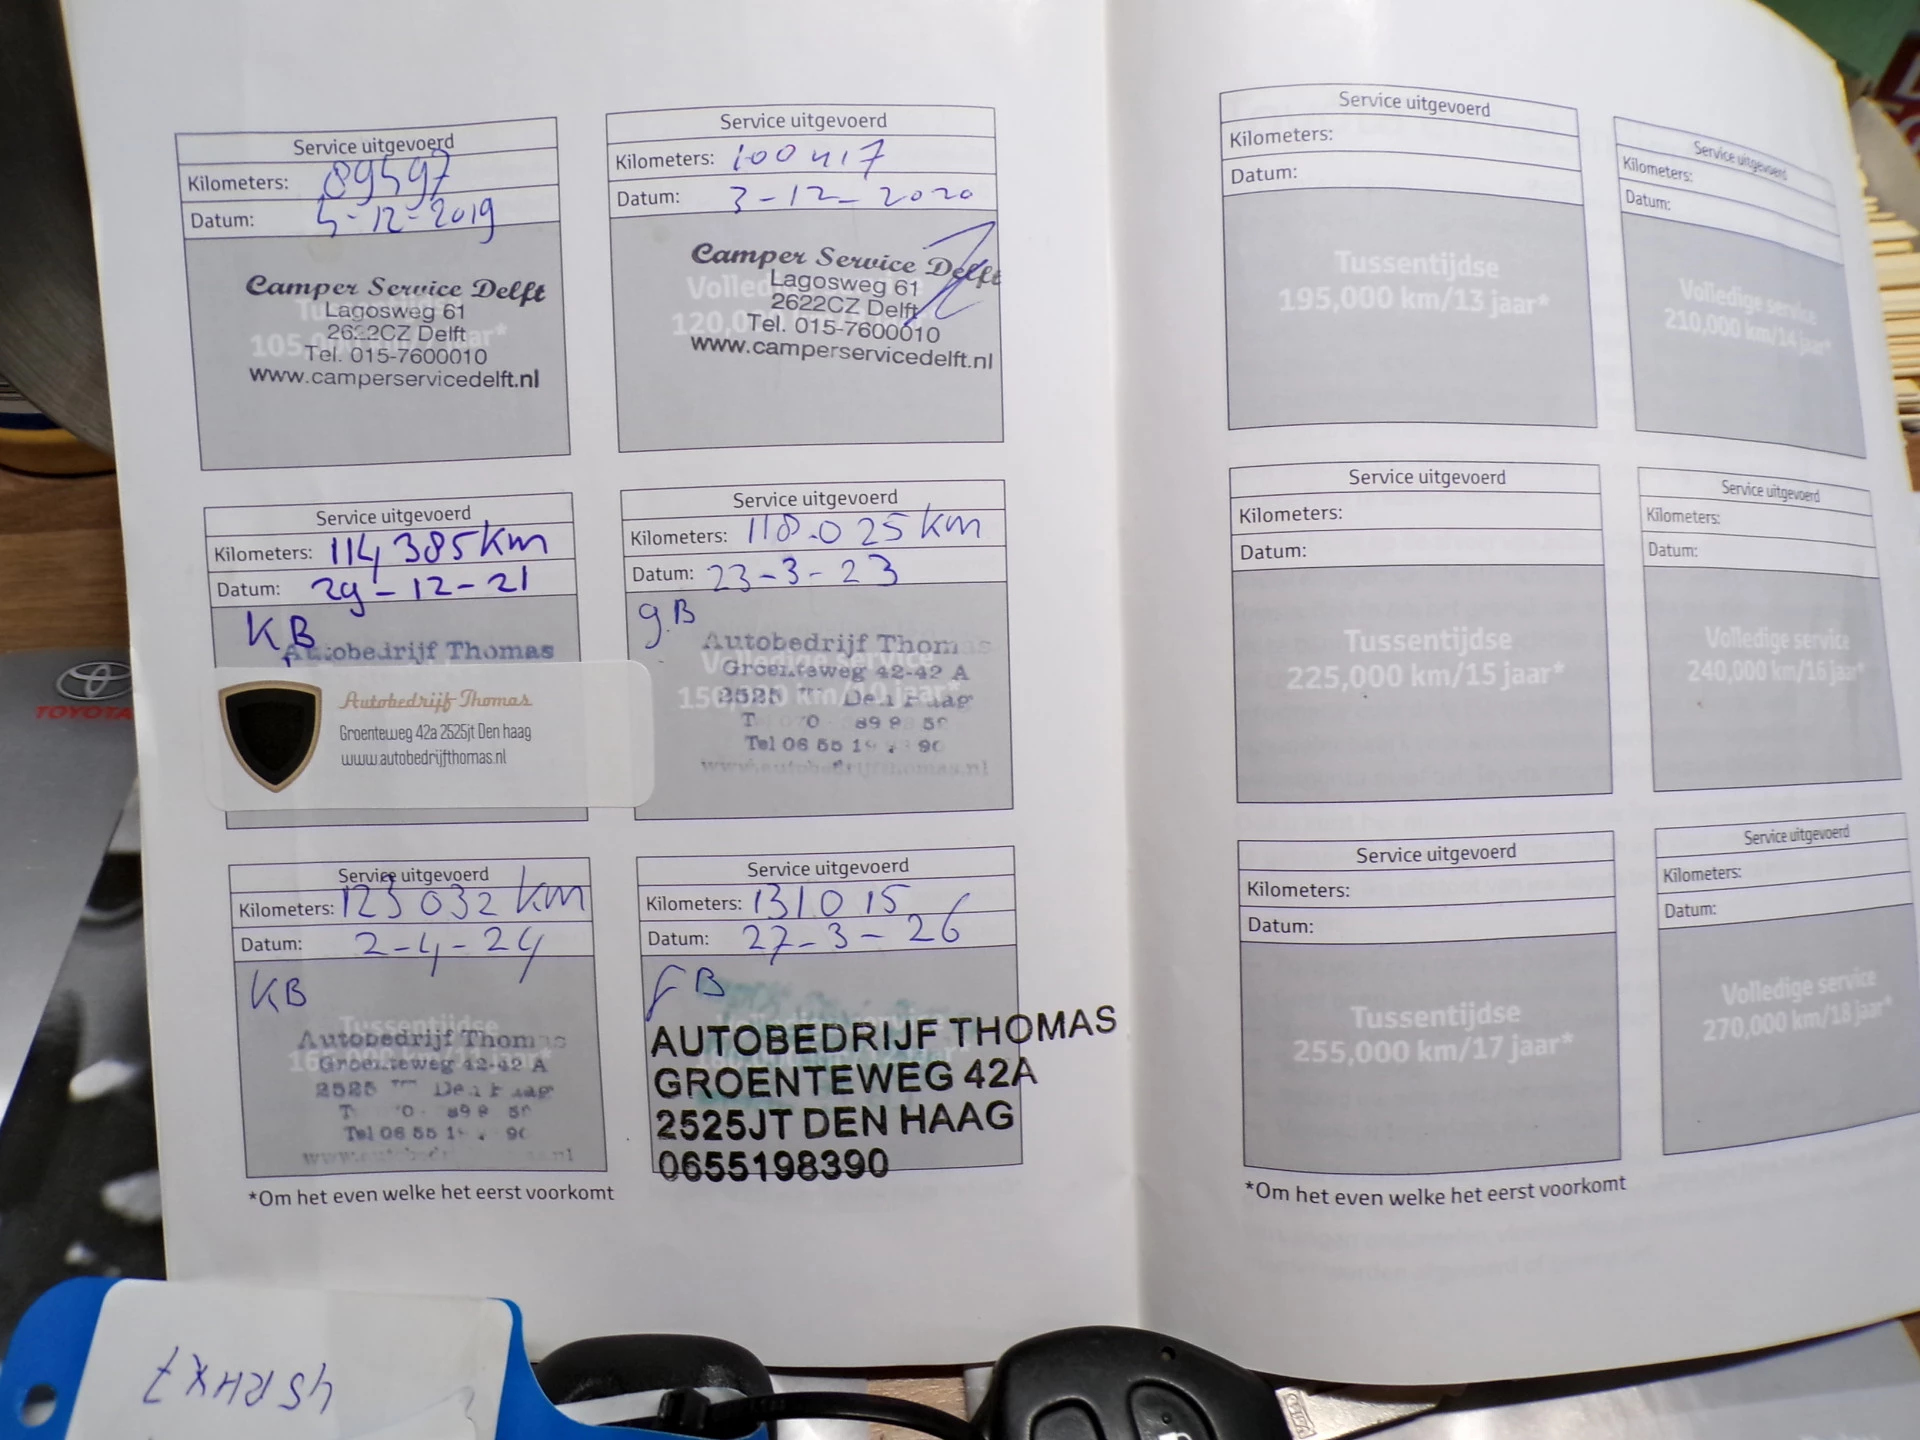 Service uitgevoerd
Kilometers: 89597
Datum: 5-12-2019
Camper Service Delft
Lagosweg 61
2622CZ Delft
105,000 km/7 jaar*
Tel. 015-7600010
www.camperservicedelft.nl
Service uitgevoerd
Kilometers: 100417
Datum: 3-12-2020
Camper Service Delft
Lagosweg 61
2622CZ Delft
Tel. 015-7600010
www.camperservicedelft.nl
Service uitgevoerd
Kilometers: 114,385km
Datum: 29-12-21
KB
Autobedrijf Thomas
Autobedrijf Thomas
Groenteweg 42a 2525jt Den haag
www.autobedrijfthomas.nl
Service uitgevoerd
Kilometers: 118.025km
Datum: 23-3-23
g.B
Autobedrijf Thomas
Groenteweg 42-42 A
2525 Den Haag
www.autobedrijfthomas.nl
Service uitgevoerd
Kilometers: 123032 km
Datum: 2-4-24
KB
Tussentijdse
Autobedrijf Thomas
Groenteweg 42-42 A
2525 Den Haag
Service uitgevoerd
Kilometers: 131015
Datum: 27-3-26
B
AUTOBEDRIJF THOMAS
GROENTEWEG 42A
2525JT DEN HAAG
0655198390
*Om het even welke het eerst voorkomt
Service uitgevoerd
Kilometers:
Datum:
Tussentijdse
195,000 km/13 jaar*
Service uitgevoerd
Kilometers:
Datum:
Volledige service
210,000 km/14 jaar*
Service uitgevoerd
Kilometers:
Datum:
Tussentijdse
225,000 km/15 jaar*
Service uitgevoerd
Kilometers:
Datum:
Volledige service
240,000 km/16 jaar*
Service uitgevoerd
Kilometers:
Datum:
Tussentijdse
255,000 km/17 jaar*
Service uitgevoerd
Kilometers:
Datum:
Volledige service
270,000 km/18 jaar*
*Om het even welke het eerst voorkomt
TOYOTA